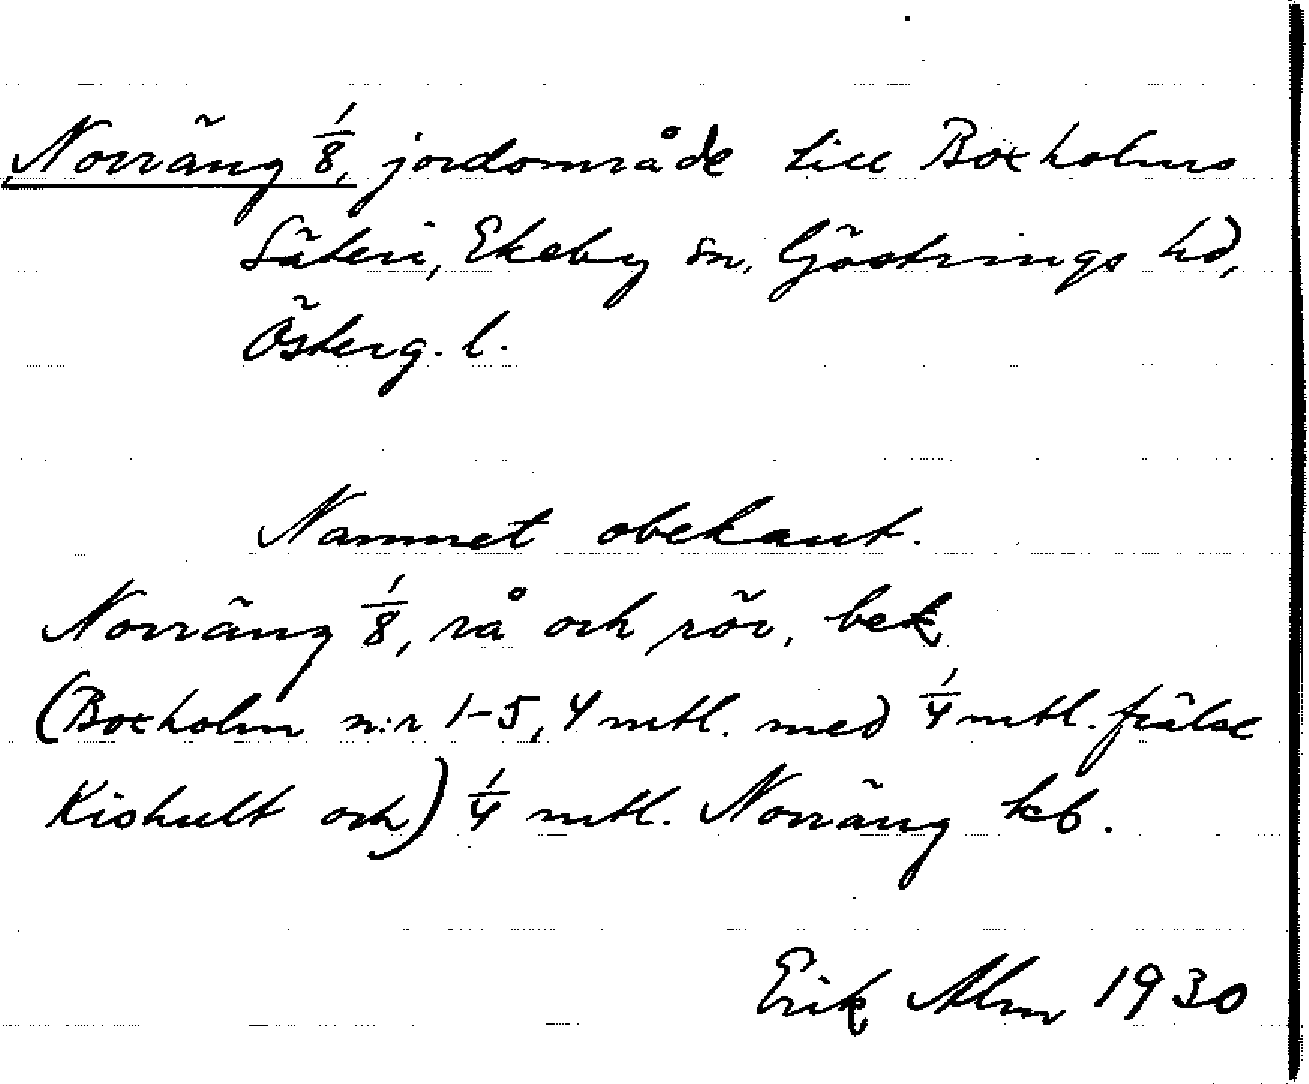 Norräng 1/8, jordområde till Boxholms
Säteri, Ekeby sn, Göstrings hd,
Österg. l.
Namnet obekant.
Norräng 1/8, rå och rör, bek
(Boxholm n:r 1-5, 4 mtl. med 1/4 mtl. frälse
Kishult och) 1/4 mtl. Norräng kb.
Erik Alm 1930